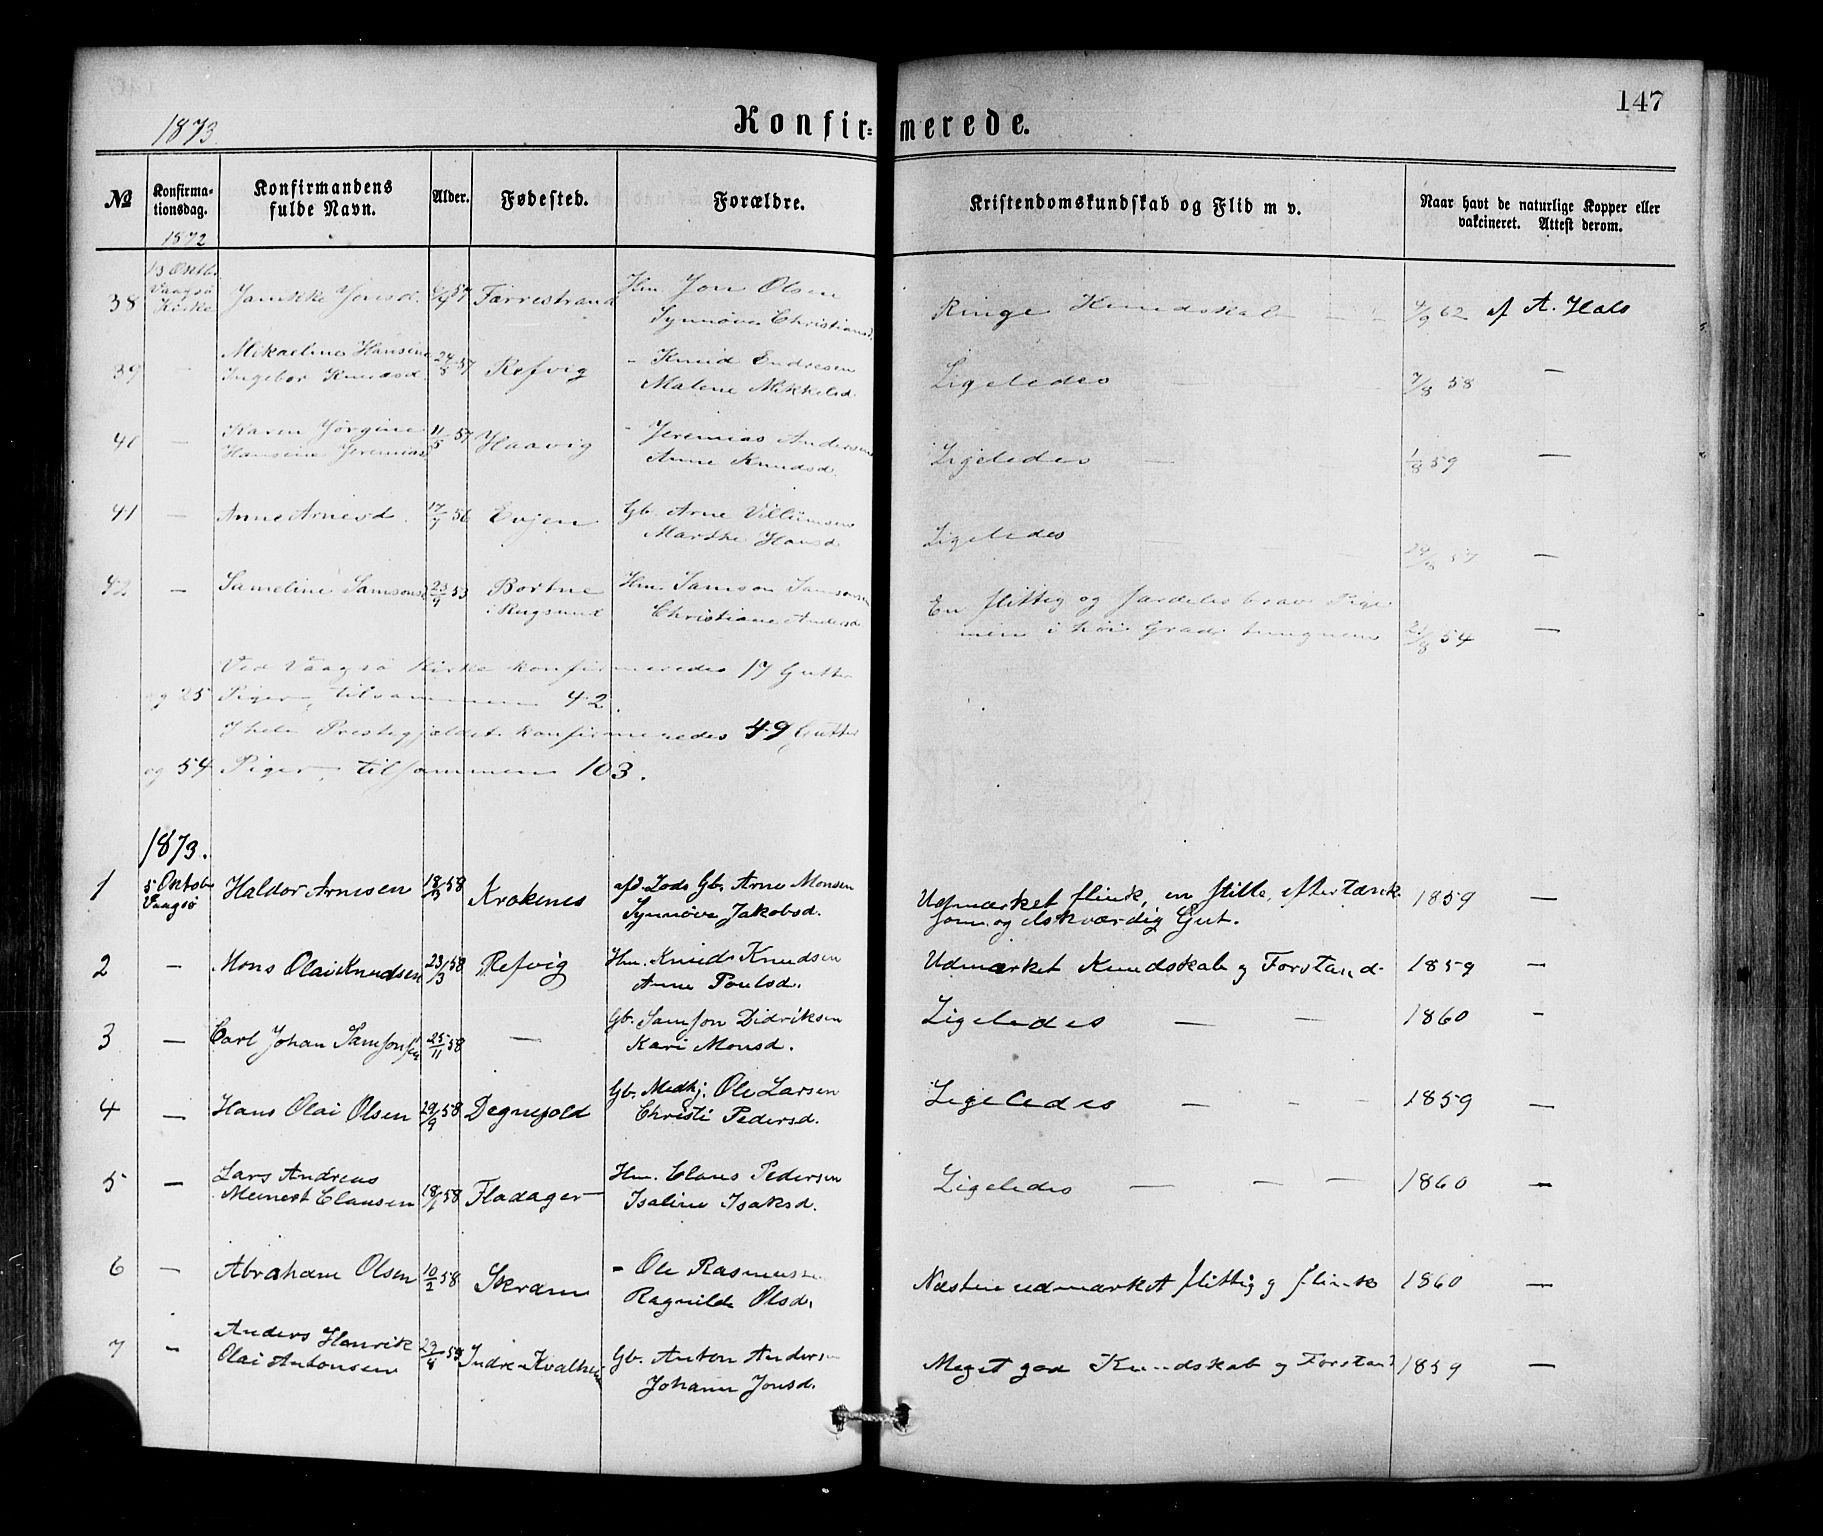 147
1873.
Konfir=merede.
№
Konfirma-
tionsdag.
Konfirmandens
fulde Navn.
Alder.
Fødested.
Forældre.
Kristendomskundskab og Flid m v.
Naar havt de naturlige Kopper eller
vakcineret. Attest derom.
1872
38 13 Oktb. Vaagsø Kirke Janikke Jonsd. 57 Færrestrand Hm Jon Olsen
Synnøve Christiansd.
Ringe Kundskab — — 62 af A. Hals
39 — Mikaeline Hansine
Ingebor Knudsd. 24/8 57 Refvig - Knud Endresen
Malene Mikkelsd.
Ligeledes — 7/8 58 —
40 — Karen Jørgine
Hansine Jeremiasd. 11/5 57 Haavig - Jeremias Andersen
Anne Knudsd.
Ligeledes — 1/8 59 —
41 — Anne Arnesd. 17/7 56 Evjen Gb. Arne Villumsen
Marthe Hansd.
Ligeledes 24/8 57 —
42 — Sameline Samsonsd. 23/4 53 Bortne
i Rugsund Hm Samson Samsonsen
Christiane Andersd
En flittig og særdeles brav Pige
men i høi Grad tungnem 21/8 54 —
Ved Vaagsø Kirke konfirmeredes 17 Gutter
og 25 Piger, tilsammen 42.
I hele Præstegjældet konfirmeredes 49 Gutter
og 54 Piger, tilsammen 103.
1873.
1 5 Oktob. Vaagsø Haldor Arnesen 18/3 58 Krokenes afd. Lods Gb. Arne Monsen
Synnøve Jakobsd.
Udmærket flink, en stille, eftertænk
som og elskværdig Gut. 1859 —
2 — Mons Olai Knudsen 23/3 58 Refvig Hm. Knud Knudsen
Anne Poulsd.
Udmærket Kundskab og Forstand. 1859 —
3 — Carl Johan Samsonsen 25/11 58 — Gb. Samson Didriksen
Kari Monsd.
Ligeledes — — 1860 -
4 — Hans Olai Olsen 29/9 58 Degnepold Gb. Medhj. Ole Larsen
Christi Pedersd.
Ligeledes — - — 1859 —
5 — Lars Andreas
Meinert Clausen 18/1 58 Flodager Hm. Claus Pedersen
Isaline Isaksd.
Ligeledes — — — 1860 —
6 — Abraham Olsen 10/2 58 Skram - Ole Rasmussen
Ragnilde Olsd.
Næsten udmærket flittig og flink 1860 —
7 - Anders Henrik
Olai Antonsen 29/8 58 Indre Kvalheim Gb. Anton Andersen
Johanne Jonsd.
Meget god Kundskab og Forstand 1859 —